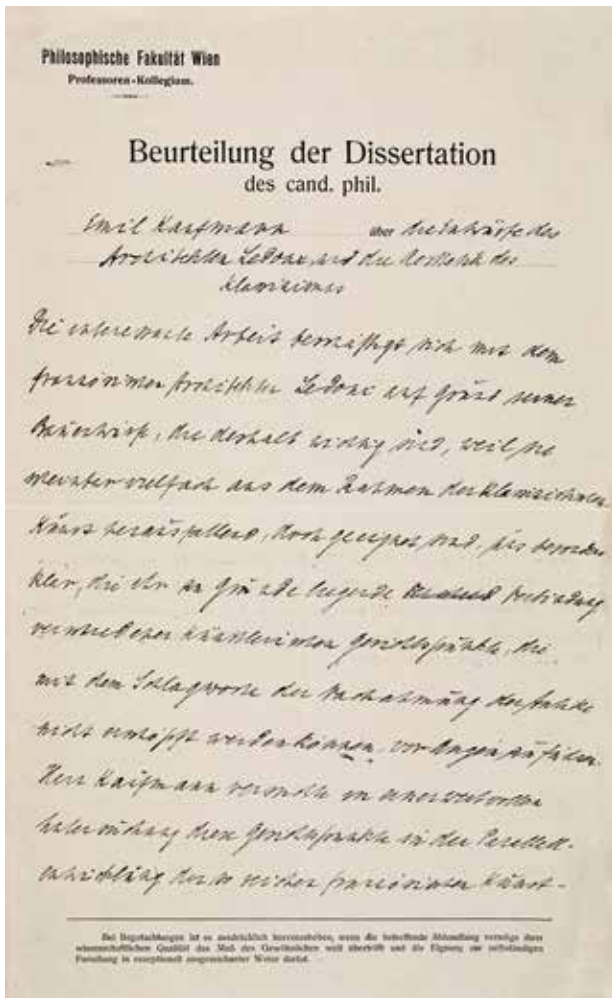 Philosophische Fakultät Wien
Professoren-Kollegium.
Beurteilung der Dissertation
des cand. phil.
Emil Kaufmann über die Entwürfe des
Architekten Ledoux und die Aesthetik des
Klassizismus
Die interessante Arbeit beschäftigt sich mit dem
französischen Architekten Ledoux auf Grund seiner
Bauentwürfe, die deshalb wichtig sind, weil sie
mitunter vielfach aus dem Rahmen der klassizistischen
Kunst herausfallend, doch geeignet sind, uns besonders
klar, die ihr zu Grunde liegende Verbindung
verschiedener künstlerischen Gesichtspunkte, die
mit dem Schlagworte der Nachahmung der Antike
nicht erschöpft werden können, vor Augen zu führen.
Herr Kaufmann versucht in einer wertvollen
Untersuchung diese Gesichtspunkte in der Parallel-
entwicklung der so reichen französischen Kunst-
Bei Begutachtungen ist es ausdrücklich hervorzuheben, wenn die betreffende Abhandlung vermöge ihrer
wissenschaftlichen Qualität das Maß des Gewöhnlichen weit übertrifft und die Eignung zur selbständigen
Forschung in exceptionell ausgezeichneter Weise dartut.